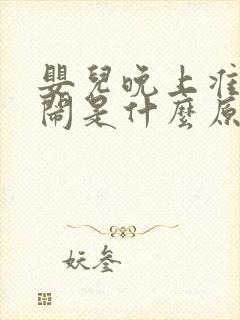 嬰兒晚上准
鬧是什麼原
妖叁